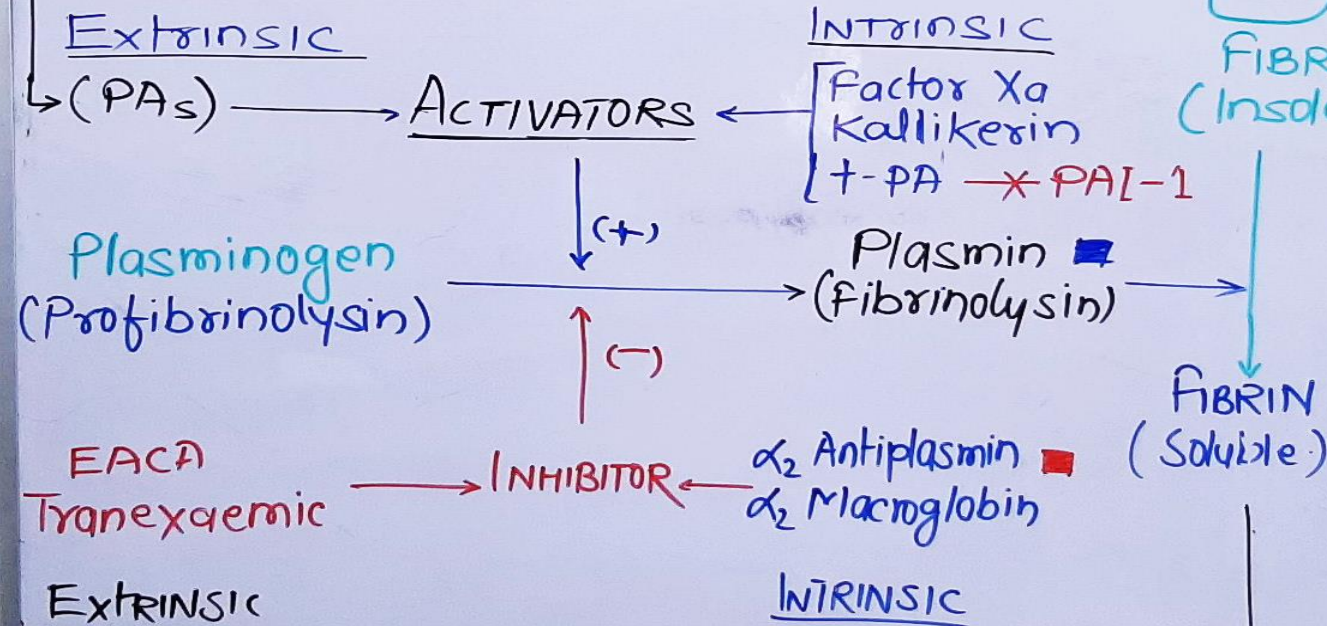 Extrinsic
INTrinSIC
(PAs)
ACTIVATORS
Factor Xa
Kallikerin
t-PA PAI-1
FIBR
(Insol
(+)
Plasminogen
(Profibrinolysin)
Plasmin
(Fibrinolysin)
(-)
FIBRIN
(Soluble)
EACA
Tranexaemic
INHIBITOR
α2 Antiplasmin
α2 Macroglobin
ExtRINSIC
INTRINSIC